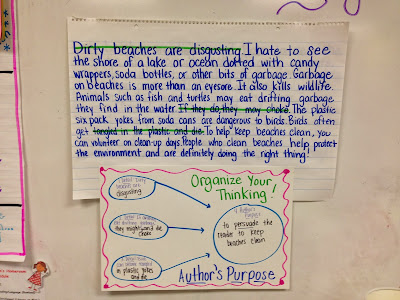 Dirty beaches are disgusting. I hate to see
the shore of a lake or ocean dotted with candy
wrappers, soda bottles, or other bits of garbage. Garbage
on beaches is more than an eyesore. It also kills wildlife.
Animals such as fish and turtles may eat drifting garbage
they find in the water. If they do, they may choke. The plastic
six pack yokes from soda cans are dangerous to birds. Birds often
get tangled in the plastic and die. To help keep beaches clean, you
can volunteer on clean-up days. People who clean beaches help protect
the environment and are definitely doing the right thing!
Organize Your
Thinking!
disgusting
they might choke
and die
in plastic yokes
and die
to persuade the
reader to keep
beaches clean
Author's Purpose